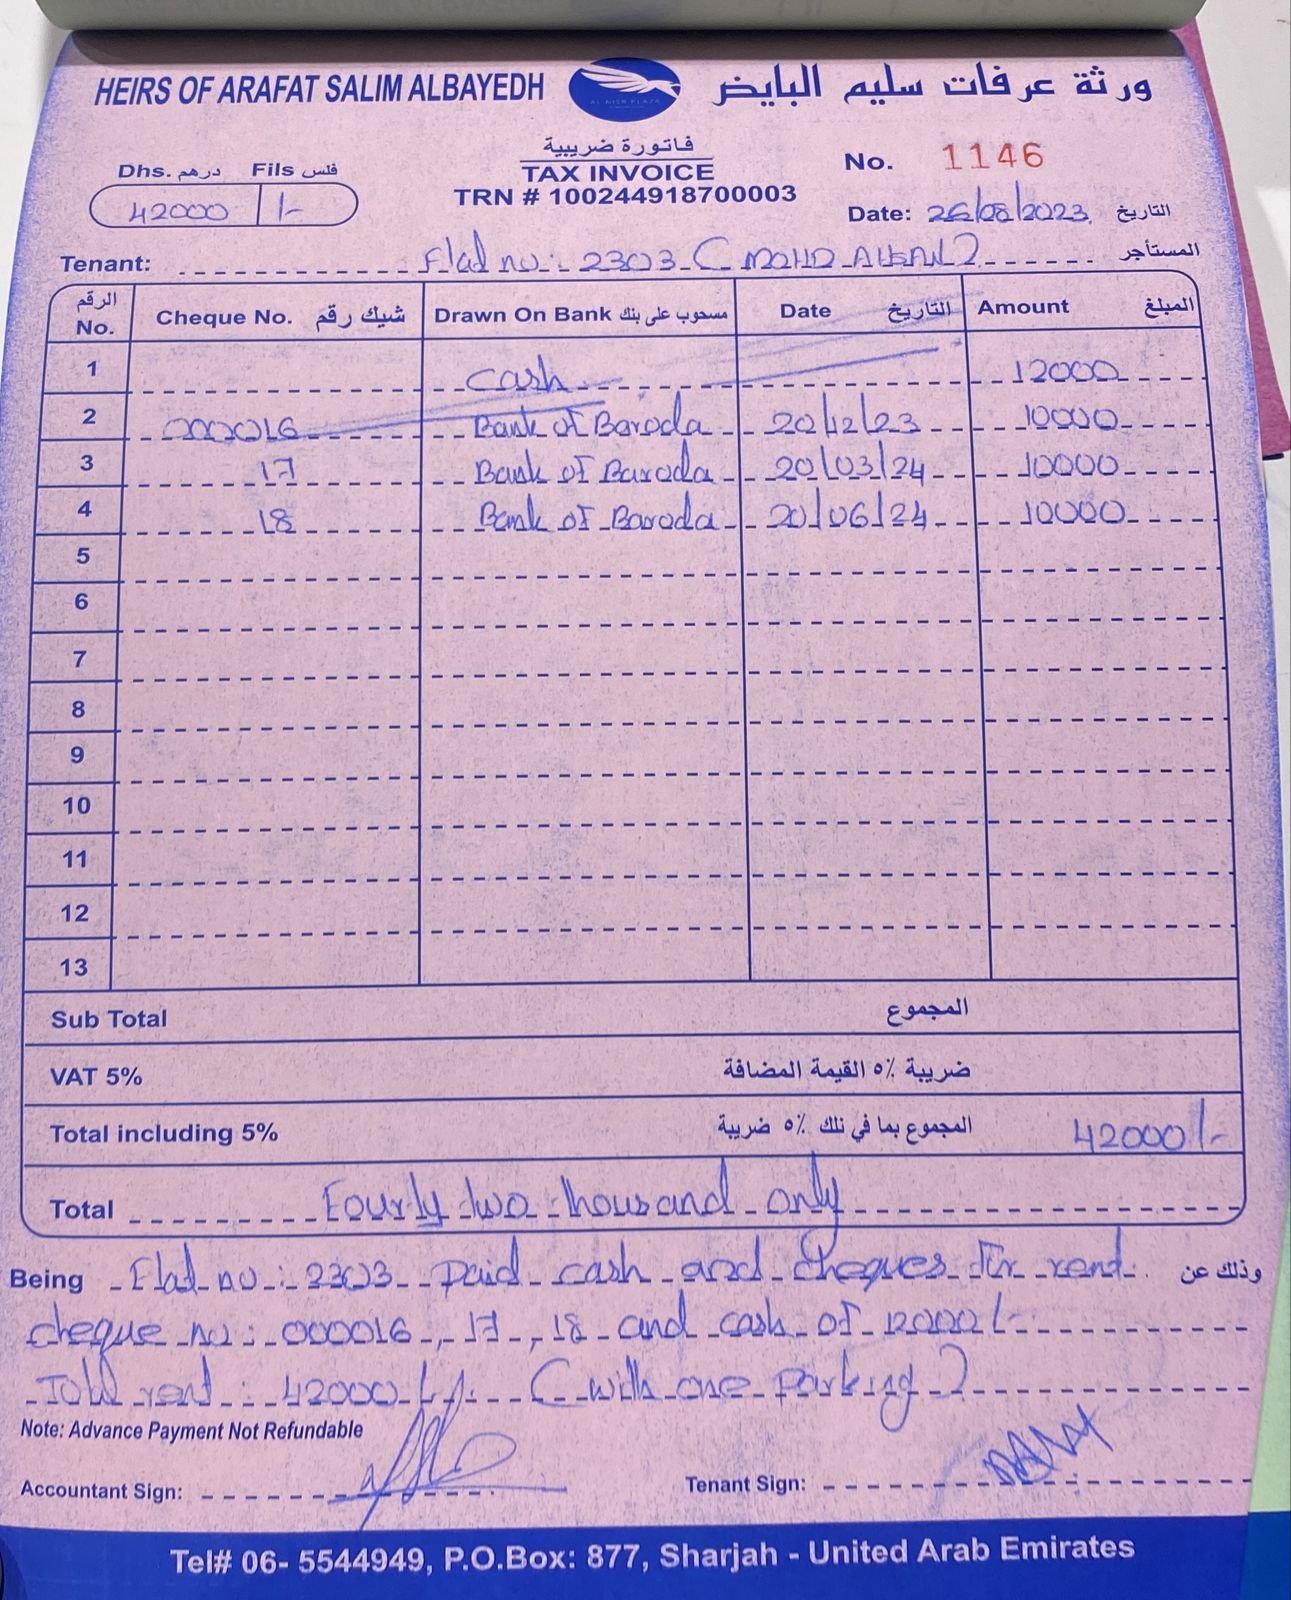 HEIRS OF ARAFAT SALIM ALBAYEDH ورثة عرفات سليم البايض
AL NISR PLAZA
فاتورة ضريبية
TAX INVOICE
TRN # 100244918700003
Dhs. درهم Fils فلس
42000 /-
No. 1146
Date: 26/08/2023 التاريخ
Tenant: Flat no: 2303 ( MOHD المستأجر
الرقم No. Cheque No. شيك رقم Drawn On Bank مسحوب على بنك Date التاريخ Amount المبلغ
1 Cash 12000
2 000016 Bank of Baroda 20/12/23 10000
3 17 Bank of Baroda 20/03/24 10000
4 18 Bank of Baroda 20/06/24 10000
5
6
7
8
9
10
11
12
13
Sub Total المجموع
VAT 5% ضريبة ٥٪ القيمة المضافة
Total including 5% المجموع بما في ذلك ٥٪ ضريبة 42000/-
Total Fourty two thousand only
Being Flat no: 2303 paid cash and cheques for rent وذلك عن
cheque no: 000016, 17, 18 and cash of 12000/-
Total rent: 42000/- (with one parking)
Note: Advance Payment Not Refundable
Accountant Sign: Tenant Sign:
Tel# 06- 5544949, P.O.Box: 877, Sharjah - United Arab Emirates